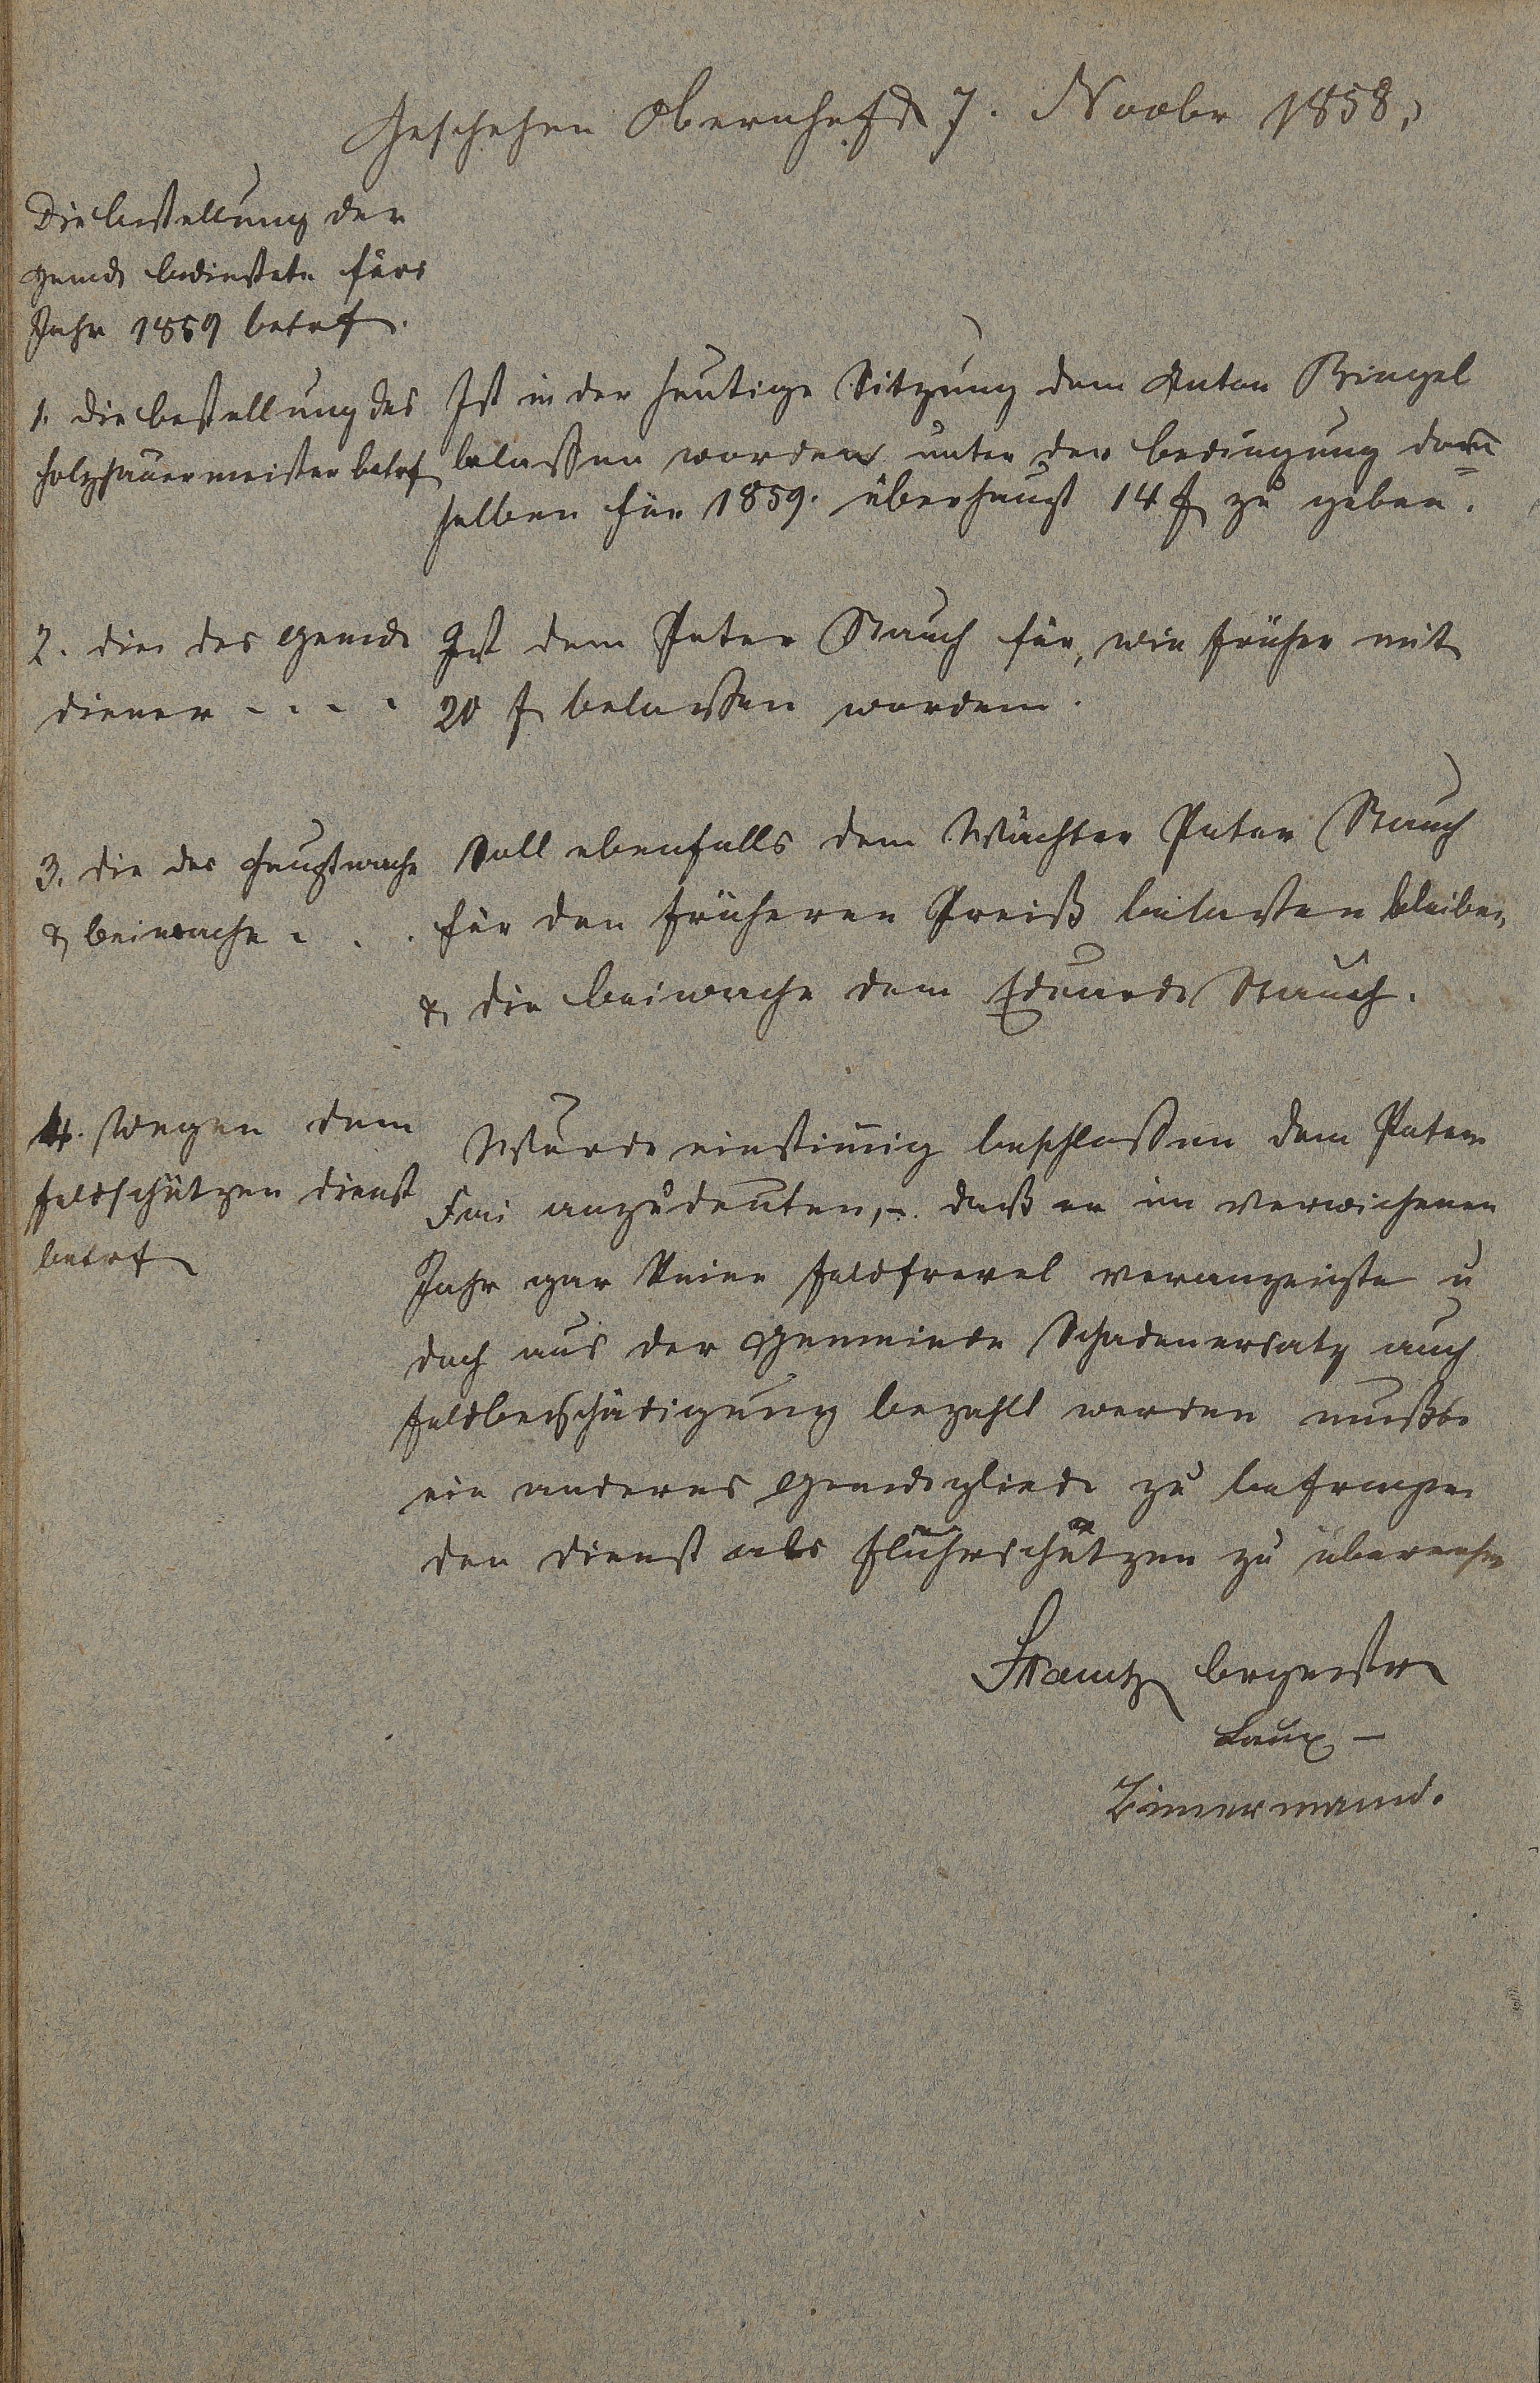 Geschehen Obernhof d 7. Novbr 1858,
Die bestellung der
gemde bedienstete fürs
Jahr 1859 betrf.
1. die bestellung des
holzhauermeister betrf
Ist in der heutige Sitzung dem Anton Bingel
belassen worden unter der bedingung dem
selben für 1859. überhaupt 14 f zu geben.
2. die des gemde
diener - - - -
Ist dem Peter Stauch für, wie früher mit
20 f belassen worden.
3. die des hauptwache
& beiwache - . .
Soll ebenfalls dem Wächter Peter Stauch
für den früheren Preiß belassen bleiben,
& die beiwache dem Eduard Stauch.
4. wegen dem
feldschützen dienst
betrf
Wurde einstimig beschlossen dem Peter
Fai anzudeuten, -. daß er im verwichenen
Jahr gar keine feldfrevel veranzeigte u
doch aus der Gemeinde Schadenersatz auch
feldbeschädigung bezahlt werden mußte
ein anderes Gemdeglied zu befragen
den dienst als fluhrschützen zu übernehm
Stamtz brgmstr
Laux -
Zimermann.